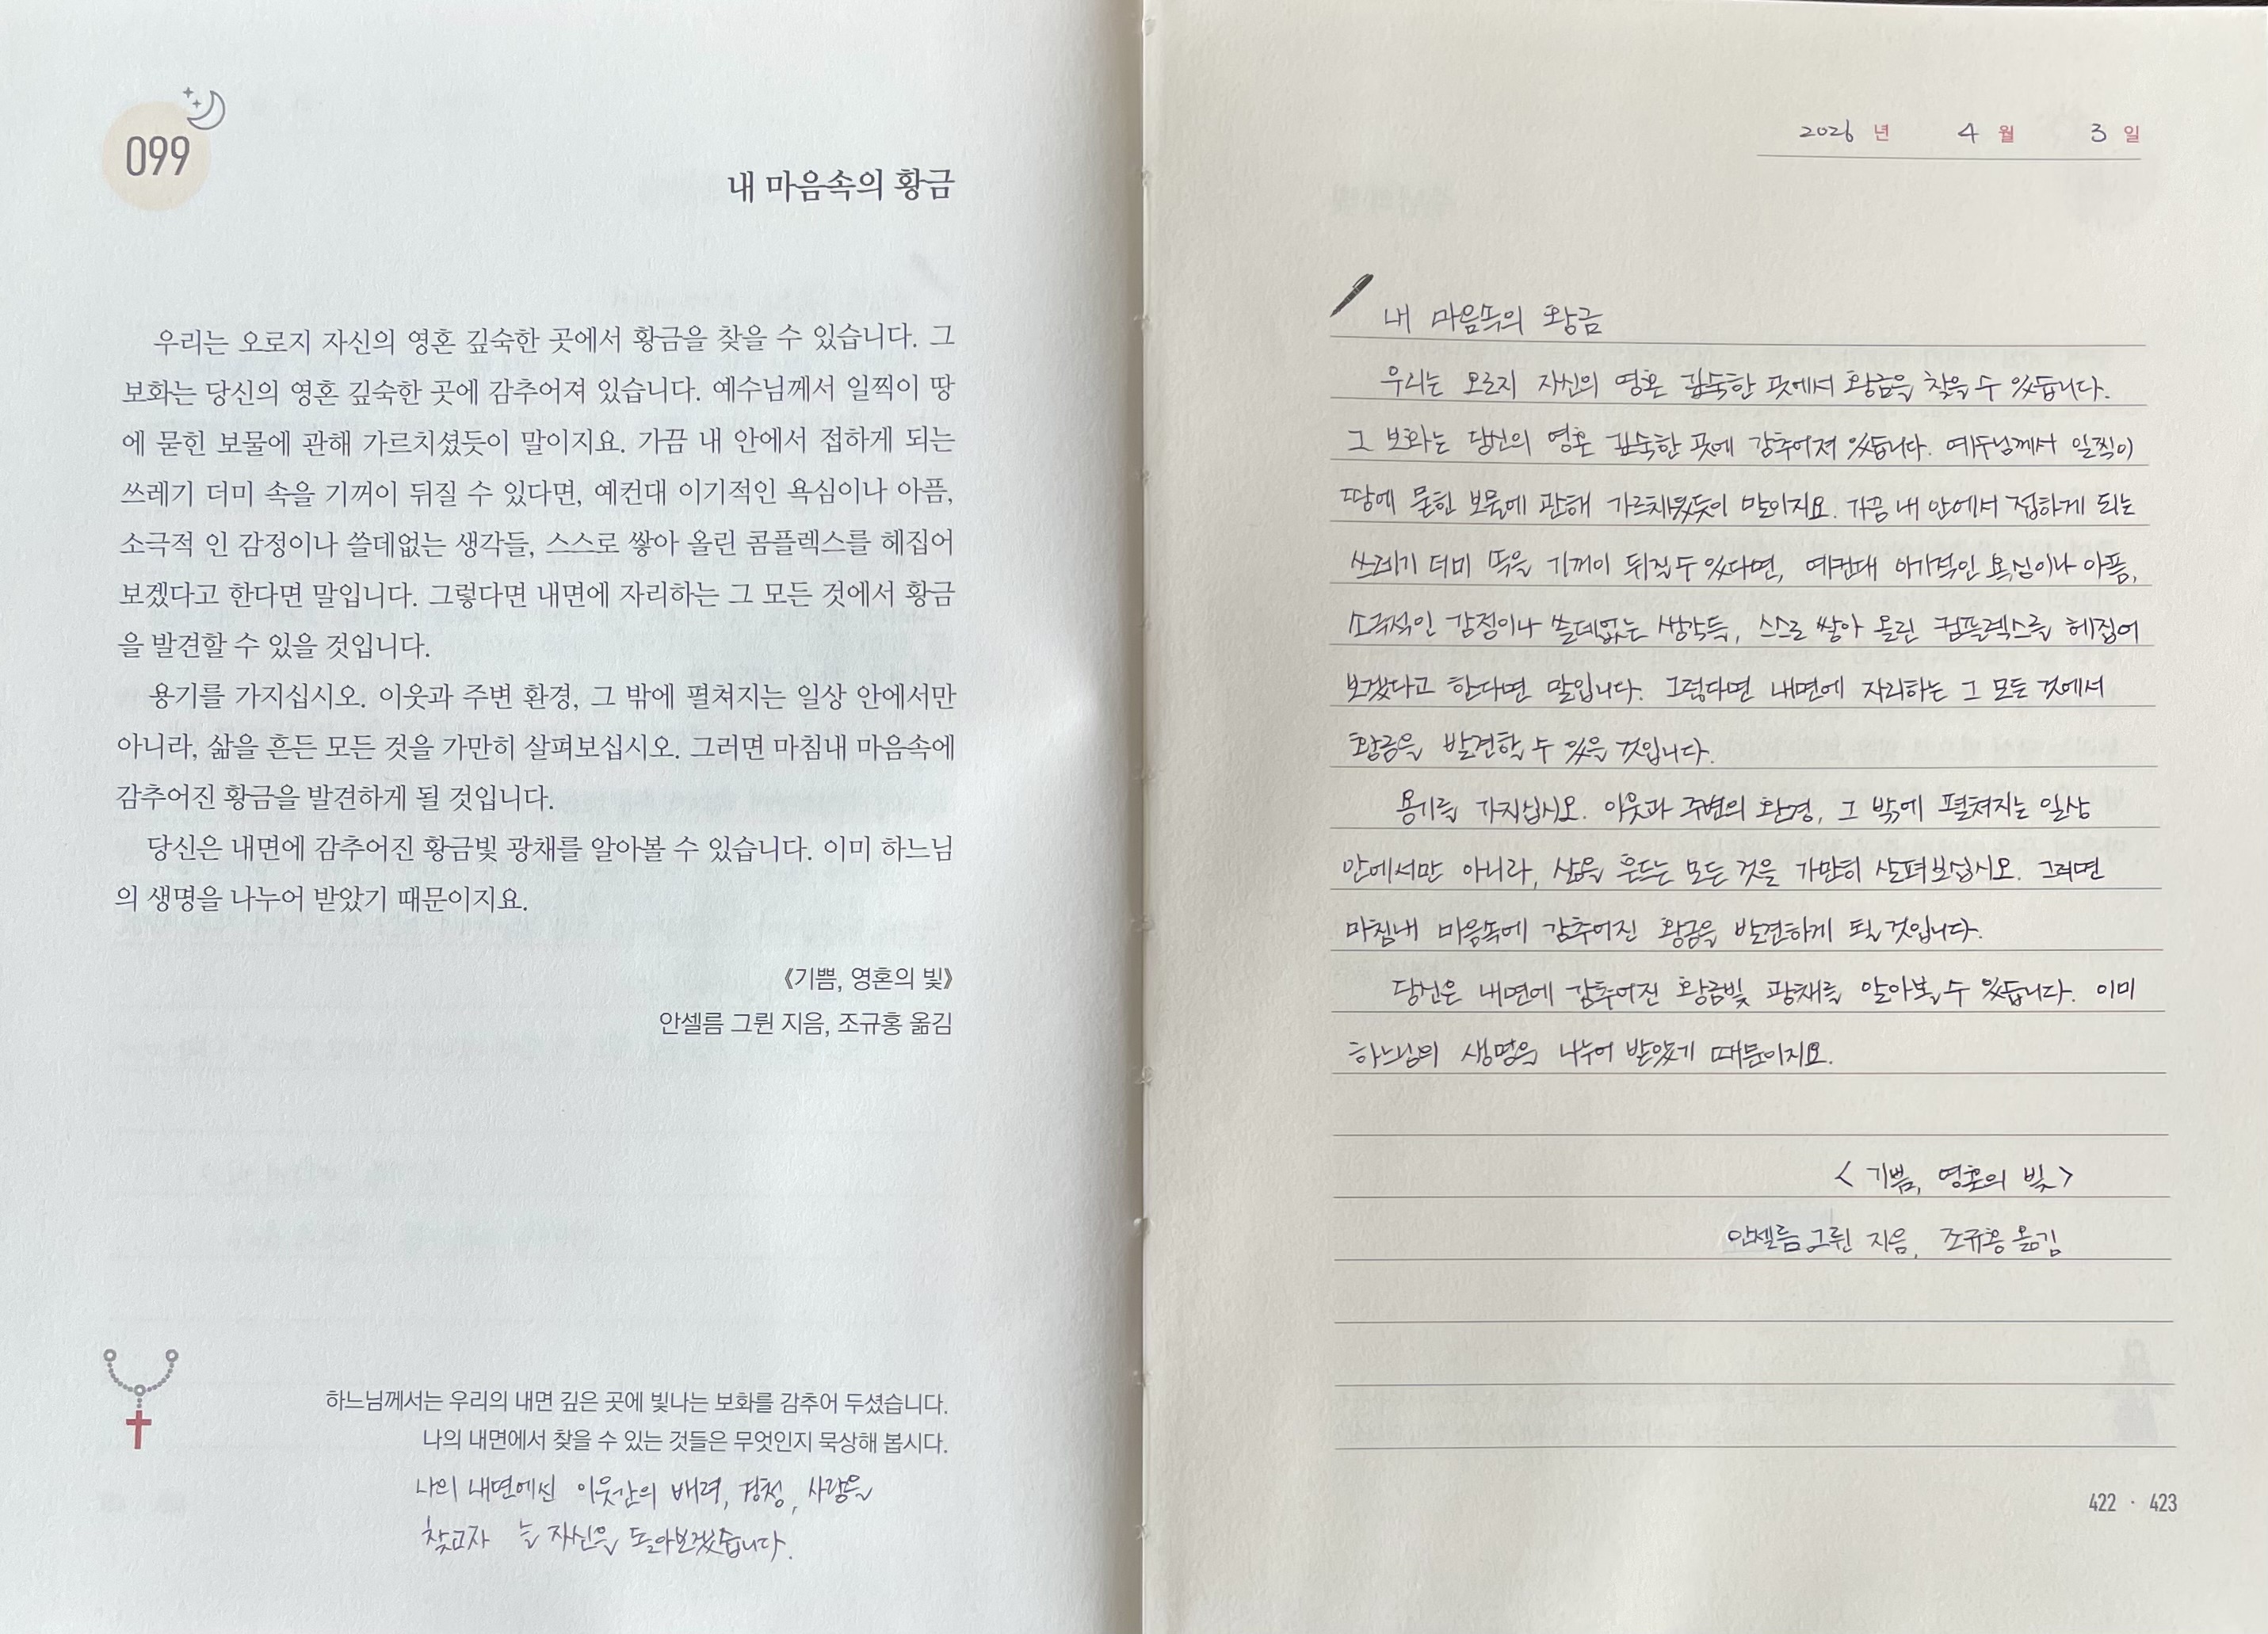 099
내 마음속의 황금
우리는 오로지 자신의 영혼 깊숙한 곳에서 황금을 찾을 수 있습니다. 그
보화는 당신의 영혼 깊숙한 곳에 감추어져 있습니다. 예수님께서 일찍이 땅
에 묻힌 보물에 관해 가르치셨듯이 말이지요. 가끔 내 안에서 접하게 되는
쓰레기 더미 속을 기꺼이 뒤질 수 있다면, 예컨대 이기적인 욕심이나 아픔,
소극적 인 감정이나 쓸데없는 생각들, 스스로 쌓아 올린 콤플렉스를 헤집어
보겠다고 한다면 말입니다. 그렇다면 내면에 자리하는 그 모든 것에서 황금
을 발견할 수 있을 것입니다.
용기를 가지십시오. 이웃과 주변 환경, 그 밖에 펼쳐지는 일상 안에서만
아니라, 삶을 흔든 모든 것을 가만히 살펴보십시오. 그러면 마침내 마음속에
감추어진 황금을 발견하게 될 것입니다.
당신은 내면에 감추어진 황금빛 광채를 알아볼 수 있습니다. 이미 하느님
의 생명을 나누어 받았기 때문이지요.
《기쁨, 영혼의 빛》
안셀름 그륀 지음, 조규홍 옮김
하느님께서는 우리의 내면 깊은 곳에 빛나는 보화를 감추어 두셨습니다.
나의 내면에서 찾을 수 있는 것들은 무엇인지 묵상해 봅시다.
나의 내면에선 이웃간의 배려, 경청, 사랑을
찾고자 늘 자신을 돌아보겠습니다.
2026 년 4 월 3 일
내 마음속의 황금
우리는 오로지 자신의 영혼 깊숙한 곳에서 황금을 찾을 수 있습니다.
그 보화는 당신의 영혼 깊숙한 곳에 감추어져 있습니다. 예수님께서 일찍이
땅에 묻힌 보물에 관해 가르치셨듯이 말이지요. 가끔 내 안에서 접하게 되는
쓰레기 더미 속을 기꺼이 뒤질 수 있다면, 예컨대 이기적인 욕심이나 아픔,
소극적인 감정이나 쓸데없는 생각들, 스스로 쌓아 올린 컴플렉스를 헤집어
보겠다고 한다면 말입니다. 그렇다면 내면에 자리하는 그 모든 것에서
황금을 발견할 수 있을 것입니다.
용기를 가지십시오. 이웃과 주변의 환경, 그 밖에 펼쳐지는 일상
안에서만 아니라, 삶을 흔드는 모든 것을 가만히 살펴보십시오. 그러면
마침내 마음속에 감추어진 황금을 발견하게 될 것입니다.
당신은 내면에 감추어진 황금빛 광채를 알아볼 수 있습니다. 이미
하느님의 생명을 나누어 받았기 때문이지요.
<기쁨, 영혼의 빛>
안셀름 그륀 지음, 조규홍 옮김
422 · 423